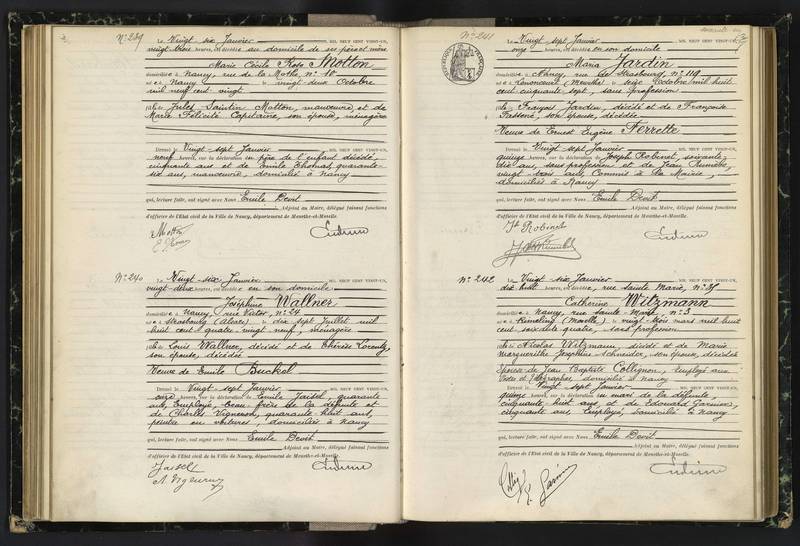 N° 239
Le Vingt-six Janvier MIL NEUF CENT VINGT-UN,
vingt-trois heures, est décédée au domicile de ses père et mère
Marie Cécile Rose Motton
domiciliée à Nancy, rue de la Mothe, n° 10
née à Nancy le vingt-deux Octobre
mil neuf cent vingt
fille de Jules Motton, manœuvre, et de
Marie Félicité Capitaine, son épouse, ménagère
Dressé le Vingt-sept Janvier MIL NEUF CENT VINGT-UN,
neuf heures, sur la déclaration du père de l'enfant décédé,
cinquante ans et de Emile Thomas, quarante-
six ans, manœuvre, domiciliés à Nancy
qui, lecture faite, ont signé avec Nous Emile Devit
Adjoint au Maire, délégué faisant fonctions
d'officier de l'Etat civil de la Ville de Nancy, département de Meurthe-et-Moselle.
Motton
N° 240
Le Vingt-six Janvier MIL NEUF CENT VINGT-UN,
vingt-deux heures, est décédée en son domicile
Joséphine Wallner
domiciliée à Nancy, rue n° 24
née à Strasbourg (Alsace) le dix Sept Juillet mil
huit cent quarante vingt neuf, ménagère
fille de Louis Wallner, décédé et de Thérèse
son épouse, décédée
Veuve de Emile Buckel
Dressé le Vingt-sept Janvier MIL NEUF CENT VINGT-UN,
onze heures, sur la déclaration de Emile quarante
ans, Employé, beau-frère de la défunte et
de Charles Vigneron, quarante-huit ans,
peintre en voitures, domiciliés à Nancy
qui, lecture faite, ont signé avec Nous Emile Devit
Adjoint au Maire, délégué faisant fonctions
d'officier de l'Etat civil de la Ville de Nancy, département de Meurthe-et-Moselle.
N° 241
Le Vingt-sept Janvier MIL NEUF CENT VINGT-UN,
onze heures, est décédée en son domicile
Maria Jardin
domiciliée à Nancy, rue de Strasbourg, n° 119
née à Meurthe le seize Octobre mil huit
cent cinquante sept, sans profession
fille de François Jardin, décédé et de Françoise
son épouse, décédée
Veuve de Ernest Eugène Ferrette
Dressé le Vingt-sept Janvier MIL NEUF CENT VINGT-UN,
quinze heures, sur la déclaration de Joseph Robinet, soixante
ans, sans profession et de Jean
vingt-trois ans, Commis à la Mairie,
domiciliés à Nancy
qui, lecture faite, ont signé avec Nous Emile Devit
Adjoint au Maire, délégué faisant fonctions
d'officier de l'Etat civil de la Ville de Nancy, département de Meurthe-et-Moselle.
Jh Robinet
N° 242
Le Vingt-six Janvier MIL NEUF CENT VINGT-UN,
dix huit heures, est décédée rue Sainte Marie, n°
Catherine Witzmann
domiciliée à Nancy, rue Sainte-Marie, n° 3
née à Rémeling (Moselle) le vingt-trois mars mil huit
cent soixante quatre, sans profession
fille de Nicolas Witzmann, décédé et de Marie
Marguerite Joséphine Schneider, son épouse, décédée
Epouse de Jean Baptiste Collignon, employé aux
Postes et Télégraphes, domicilié à Nancy
Dressé le Vingt-sept Janvier MIL NEUF CENT VINGT-UN,
quinze heures, sur la déclaration du mari de la défunte,
cinquante huit ans, et de Edouard Garnier,
cinquante ans, Employé, domiciliés à Nancy
qui, lecture faite, ont signé avec Nous Emile Devit
Adjoint au Maire, délégué faisant fonctions
d'officier de l'Etat civil de la Ville de Nancy, département de Meurthe-et-Moselle.